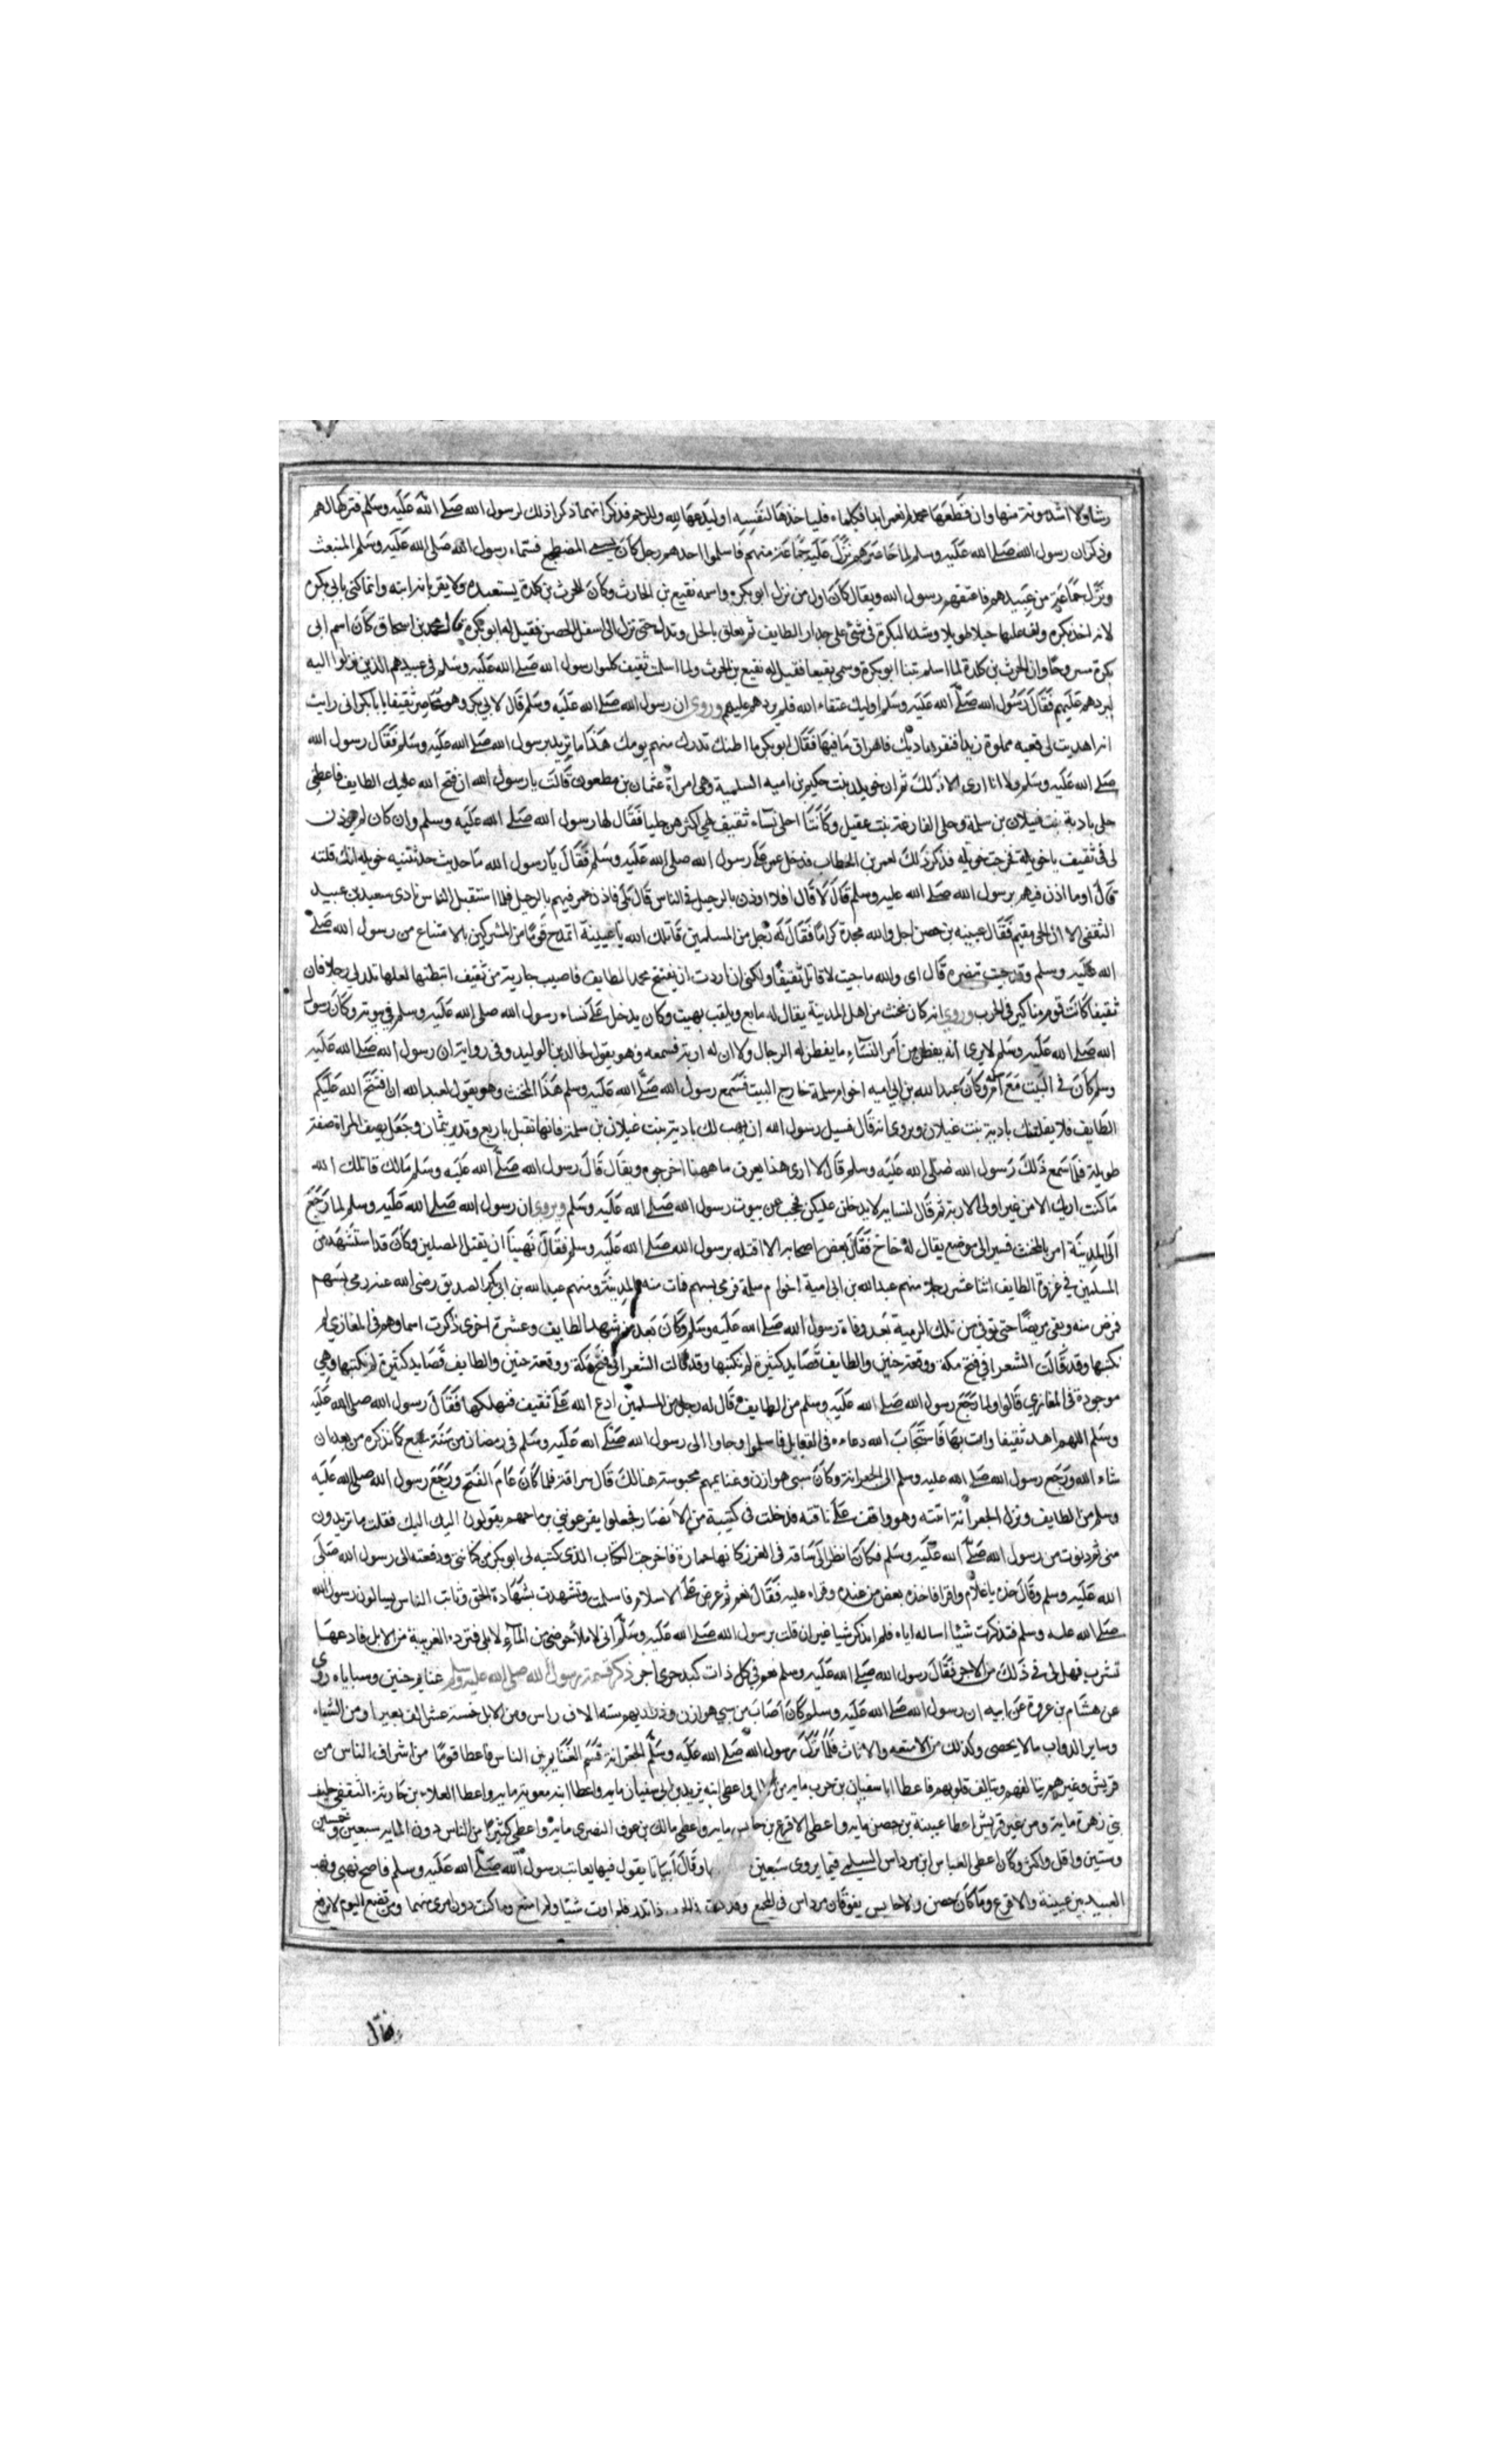 رشاولا اشد مونة منها وان قطعها محمد لم تعمر ابدا فكلماه فلياخذها لنفسه او ليدعها لله وللرحم فذكر انهما ذكرا ذلك لرسول الله صلى الله عليه وسلم فتركها لهم
وذكر ان رسول الله صلى الله عليه وسلم لما حاصرهم نزل عليه جماعة منهم فاسلموا احدهم رجل كان يسمى المضطجع فسماه رسول الله صلى الله عليه وسلم المنبعث
ونزل جماعة من عبيدهم فاعتقهم رسول الله ويقال كان اول من نزل ابو بكره واسمه نفيع بن الحارث وكان للحرث بن كلدة يستعبده ولا يقر بانه ابنه وانما كنى بابي بكره
لانه اخذ بكره ولف عليها حبلا طويلا وشد البكرة في شئ على جدار الطايف ثم تعلق بالحبل وتدلى حتى نزل الى اسفل الحصن فقيل له ابو بكره قال محمد بن اسحاق كان اسم ابى
بكرة مسروحا وان الحرث بن كلدة لما اسلم تبنا ابو بكرة وسمى نفيعا فقيل له نفيع بن الحرث ولما اسلمت ثقيف كلموا رسول الله صلى الله عليه وسلم في عبيدهم الذين نزلوا اليه
ليردهم عليهم فقال رسول الله صلى الله عليه وسلم اوليك عتقاء الله فلم يردهم عليهم وروى ان رسول الله صلى الله عليه وسلم قال لابي بكر وهو محاصر ثقيفا يا ابا بكر انى رايت
انه اهديت لى قعبه مملوة زبدا فنقرها ديك فاهراق ما فيها فقال ابو بكر ما اظنك تدرك منهم يومك هذا ما تريد يرسول الله صلى الله عليه وسلم فقال رسول الله
صلى الله عليه وسلم ولا انا ارى الا ذلك ثم ان خويلد بنت حكيم بن اميه السلمية وهى امراة عثمان بن مظعون قالت يا رسول الله ان فتح الله عليك الطايف فاعطنى
حلى بادية بنت غيلان بن سلمة وحلى الفارغة بنت عقيل وكانتا احلى نساء ثقيف اى اكثرهن حليا فقال لها رسول الله صلى الله عليه وسلم وان كان لم يوذن
لى فى ثقيف يا خويلة فخرجت خويلة فذكر ذلك لعمر بن الخطاب فدخل عمر على رسول الله صلى الله عليه وسلم فقال يا رسول الله ما حديث حدثتنيه خويله انك قلته
قال اوما اذن فيهم يرسول الله صلى الله عليه وسلم قال لا قال افلا اوذن بالرحيل فى الناس قال بلى فاذن عمر فيهم بالرحيل فلما استقبل الناس نادى سعيد بن عبيد
الثقفى الا ان الحى مقيم فقال عيينه بن حصن اجل والله مجدة كراما فقال له رجل من المسلمين قاتلك الله يا عيينة اتمدح قوما من المشركين بالامتناع من رسول الله صلى
الله عليه وسلم وقد جيت تنصره قال اى والله ما جيت لاقاتل ثقيفا ولكنى اردت ان يفتح محمد الطايف فاصيب جارية من ثقيف اتبطنها لعلها تلد لى رجلا فان
ثقيفا كانت قوم مناكير فى الحرب وروى انه كان مخنث من اهل المدينة يقال له مابع ويلقب بهيت وكان يدخل على نساء رسول الله صلى الله عليه وسلم فى بيوته وكان رسول
الله صلى الله عليه وسلم لا يرى انه يفطن من امر النساء ما يفطن له الرجال ولا ان له اربة فسمعه وهو يقول لخالد بن الوليد وفى رواية ان رسول الله صلى الله عليه
وسلم كان فى البيت مع ام سلمة وكان عبد الله بن ابى اميه اخو ام سلمة خارج البيت فسمع رسول الله صلى الله عليه وسلم هذا المخنث وهو يقول لعبد الله ان فتح الله عليكم
الطايف فلا يفلتنك بادية بنت غيلان ويروى انه قال فسيل رسول الله ان يهب لك بادية بنت غيلان بن سلمة فانها تقبل باربع وتدبر بثمان وجعل يصف المراة صفة
طويلة فلما سمع ذلك رسول الله صلى الله عليه وسلم قال الا ارى هذا يعرف ما ههنا اخرجوه ويقال قال رسول الله صلى الله عليه وسلم مالك قاتلك الله
ما كنت اريك الا من غير اولى الاربة ثم قال لنسايه لا يدخلن عليكن فحجب عن بيوت رسول الله صلى الله عليه وسلم ويروى ان رسول الله صلى الله عليه وسلم لما رجع
الى المدينة امر بالمخنث فسير الى موضع يقال له خاخ فقال بعض اصحابه الا اقتله يرسول الله صلى الله عليه وسلم فقال نهينا ان يقتل المصلين وكان قد استشهد من
المسلمين في غزوة الطايف اثنا عشر رجلا منهم عبد الله بن ابى امية اخو ام سلمة فرمى بسهم فات منه بالمدينة ومنهم عبد الله بن ابى بكر الصديق رضى الله عنه رمى بسهم
فرض منه وبقى مريضا حتى توفى من تلك الرمية بعد وفاة رسول الله صلى الله عليه وسلم وكان بعد من شهد الطايف وعشرة اخرى ذكرت اسماوهم فى المغازي لم
نكتبها وقد قالت الشعرا في فتح مكة ووقعة حنين والطايف قصايد كثيرة لم نكتبها وقد قالت الشعرا فى فتح مكة ووقعة حنين والطايف قصايد كثيرة لم نكتبها وهي
موجودة فى المغازي قالوا ولما رجع رسول الله صلى الله عليه وسلم من الطايف قال له رجل من المسلمين ادع الله على ثقيف فنهلكها فقال رسول الله صلى الله عليه
وسلم اللهم اهد ثقيفا وات بها فاستجاب الله دعاءه فى القبايل فاسلموا وجاوا الى رسول الله صلى الله عليه وسلم فى رمضان من سنة تسع كما نذكره من بعد ان
شاء الله ورجع رسول الله صلى الله عليه وسلم الى الجعرانة وكان سبى هوازن وغنايمهم محبوسة هنالك قال سراقة فلما كان عام الفتح ورجع رسول الله صلى الله عليه
وسلم من الطايف ونزل الجعرانة اتيته وهو واقف على ناقته فدخلت فى كتيبة من الانصار فجعلوا يقرعونني برماحهم يقولون اليك اليك فقلت ما تريدون
منى ثم دنوت من رسول الله صلى الله عليه وسلم فكان انظر الى ساقه فى الغرز كانها جمارة فاخرجت الكتاب الذى كتبه لى ابو بكر من كنانتى ودفعته الى رسول الله صلى
الله عليه وسلم وقال خذه يا غلام واقرا فاخذه بعض من عنده وقراه عليه فقال نعم ثم عرض على الاسلام فاسلمت وتشهدت بشهادة الحق وثابت الناس يسالون رسول الله
صلى الله عليه وسلم فتذكرت شيئا اساله اياه فلم اذكر شيا غير ان قلت يرسول الله صلى الله عليه وسلم انى لاملأ حوضى من الماء لابلى فترد الغريبة من الابل فادعها
تشرب فهل لى فى ذلك من الاجر فقال رسول الله صلى الله عليه وسلم نعم في كل ذات كبد حرى اجر ذكر قسمة رسول الله صلى الله عليه وسلم غنايم حنين وسباياه روى
عن هشام بن عروة عن ابيه ان رسول الله صلى الله عليه وسلم كان اصاب من سبى هوازن سته الاف راس ومن الابل خمسة عشر الف بعيرا ومن الشياه
وساير الدواب ما لا يحصى وكذلك من الامتعه والاثاث فلما نزل رسول الله صلى الله عليه وسلم الجعرانة قسم الغنايم بين الناس فاعطا قوما من اشراف الناس من
قريش وغيرهم يتالفهم ويتالف قلوبهم فاعطا ابا سفيان بن حرب ماية من الابل واعطى ابنه يزيد بن ابى سفيان ماية واعطا ابنه معوية ماية واعطا العلاء بن حارثة الثقفى حليف
بني زهرة ماية ومن غير قريش اعطا عيينة بن حصن ماية واعطى الاقرع بن حابس ماية واعطى مالك بن عوف النصرى ماية واعطى كثيرا من الناس دون الماية سبعين وخمسين
وستين واقل واكثر وكان اعطى العباس ابن مرداس السلمى فيما يروى سبعين وقال ابياتا يقول فيها يعاتب رسول الله صلى الله عليه وسلم فاصبح نهبى ونهب
العبيد بين عيينة والاقرع وما كان حصن ولا حابس يفوقان مرداس فى المجمع وقد كنت ذا تدرء فلم اوت شيئا ولم امنع وما كنت دون امرى منهما ومن تضع اليوم لا يرفع
فقال